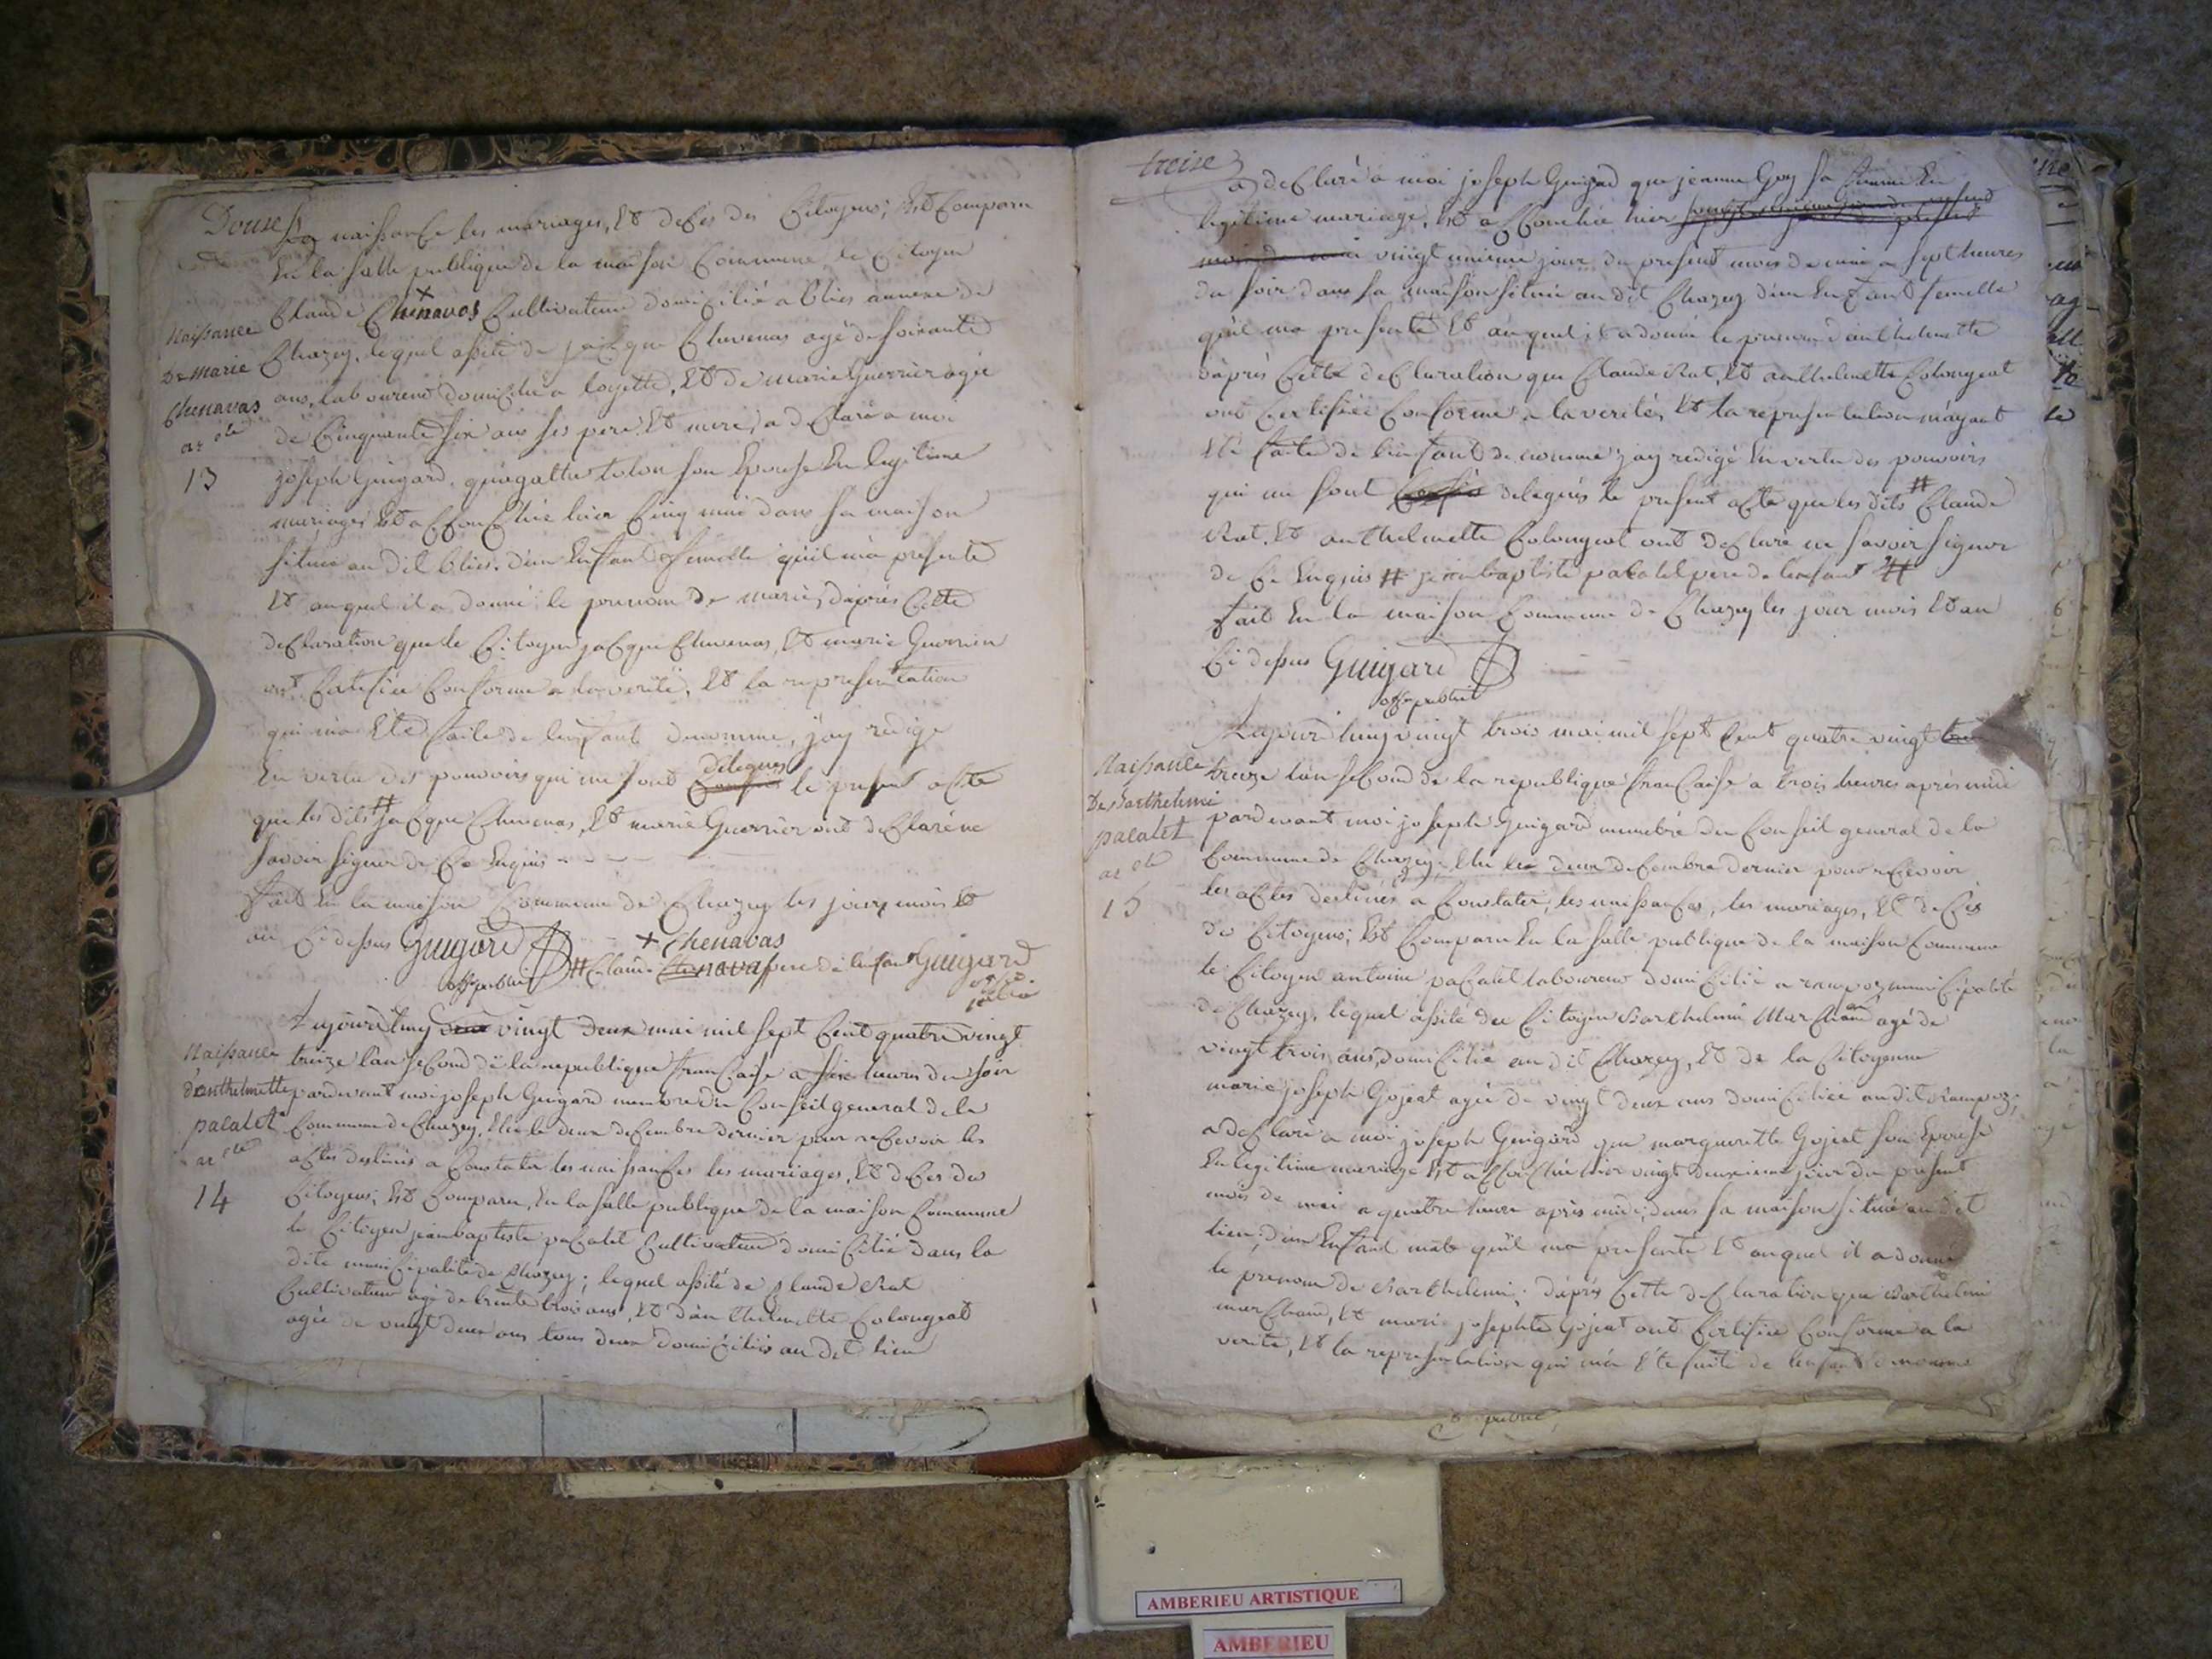 Douse
les naissance les mariages, Et deces des Citoyens; Est Comparu
En la salle publique de la maison Commune le Citoyen
Claude Chenavas Cultivateur domicilié a blies annexe de
Naissance
De Marie
Chenavas
13
Chazey, lequel assité de jacque Chavenas agé de soixante
ans, laboureur domicilié a loyette, Et de marie Guerrier agée
de Cinquante six ans ses pere Et mere, a declaré a moi
joseph Guigard, qu'agathe tolon son Epouse En legitime
mariage, Est accouchée hier Cinq mai dans sa maison
située au dit blies. d'un Enfant femelle qu'il m'a presenté
Et auquel il a donné le prenom de marie, d'apres Cette
declaration que le Citoyen jacque Chavenas, Et marie Guerrier
ont Certifiée Conforme a la verité, Et la representation
qui m'a Eté faite de l'enfant denommé, j'ay redigé
En vertu des pouvoirs qui me sont delegués le present acte
que les dits # jacque Chavenas, Et marie Guerrier ont declaré ne
savoir signer de Ce Enquis
fait En la maison Commune de Chazey les jour mois Et
an Ci dessus Guigard + Chenavas
off. public # Claude Chenavas pere de l'enfant Guigard
Aujourd'huy vingt deux mai mil sept Cent quatre vingt
Naissance
d'anthelmette
pacalet
14
treize l'an second de la republique francaise a six heures du soir
pardevant moi joseph Guigard membre du Conseil general de la
Commune de Chazey, Elu le deux decembre dernier pour recevoir les
actes destinés a Constater les naissances les mariages, Et deces des
Citoyens; Est Comparu, En la salle publique de la maison Commune
le Citoyen jeanbaptiste pacalet Cultivateur domicilié dans la
dite municipalité de Chazey; lequel assité de Claude Rat
Cultivateur agé de trente trois ans, Et d'anthelmette Colongeat
agée de vingt deux ans tous deux domiciliés au dit lieu
treize
a declaré a moi joseph Guigard que jeanne Goy sa femme En
legitime mariage, Est accouchée hier
vingt unieme jour du present mois de mai a sept heures
du soir dans sa maison située au dit Chazey d'un Enfant femelle
qu'il ma presenté Et auquel il a donné le prenom d'anthelmette
d'apres Cette declaration que Claude Rat, Et anthelmette Colongeat
ont Certifiée Conforme a la verité, Et la representation m'ayant
Eté faite de l'enfant denommé j'ay redigé En vertu des pouvoirs
qui me sont delegués le present acte que les dits # Claude
Rat, Et anthelmette Colongeat ont declaré ne savoir signer
de Ce Enquis # jeanbaptiste pacalet pere de l'enfant #
fait En la maison Commune de Chazey les jour mois Et an
Ci dessus Guigard
off. public
Aujourd'huy vingt trois mai mil sept Cent quatre vingt
Naissance
De Barthelemi
pacalet
15
treize l'an second de la republique francaise a trois heures après midi
pardevant moi joseph Guigard membre du Conseil general de la
Commune de Chazey, Elu le deux decembre dernier pour recevoir
les actes destinés a Constater, les naissances, les mariages, Et deces
des Citoyens; Est Comparu En la salle publique de la maison Commune
le Citoyen antoine pacalet laboureur domicilié a rampoz municipalité
de Chazey, lequel assité du Citoyen Barthelemi Marchand agé de
vingt trois ans, domicilié au dit Chazey, Et de la Citoyenne
marie joseph Gojeat agée de vingt deux ans domiciliée au dit Rampoz;
a declaré a moi joseph Guigard que marguerite Gojeat son Epouse
En legitime mariage Est accouchée hier vingt deuxieme jour du present
mois de mai a quatre heures après midi, dans sa maison située au dit
lieu; d'un Enfant male qu'il ma presenté Et auquel il a donné
le prenom de Barthelemi; d'après Cette declaration que Barthelemi
marchand, Et marie josephte Gojeat ont Certifiée Conforme a la
verité, Et la representation qui m'a Eté faite de l'enfant denommé
public
AMBERIEU ARTISTIQUE
AMBERIEU